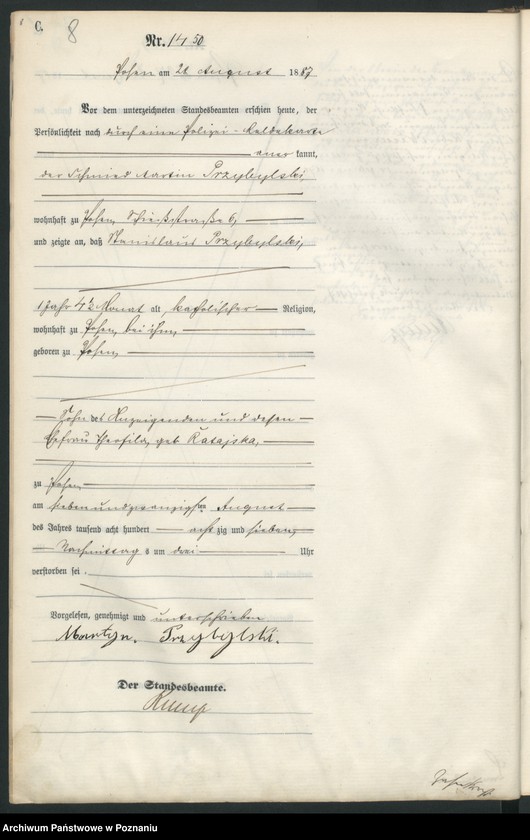 C.
8
Nr. 1450
Posen am 28 August 1887
Vor dem unterzeichneten Standesbeamten erschien heute, der
Persönlichkeit nach durch eine Polizei-Meldekarte
aner kannt,
der Schmied Martin Przybylski,
wohnhaft zu Posen, Schießstraße 6,
und zeigte an, daß Stanislaus Przybylski,
1 Jahr 4½ Monat alt, katholischer Religion,
wohnhaft zu Posen, bei ihm,
geboren zu Posen,
Sohn des Anzeigenden und dessen
Ehefrau Theofila, geb. Ratajska,
zu Posen
am siebenundzwanzigsten August
des Jahres tausend acht hundert achtzig und sieben
Nachmittags um drei Uhr
verstorben sei.
Vorgelesen, genehmigt und unterschrieben
Martyn. Przybylski.
Der Standesbeamte.
Archiwum Państwowe w Poznaniu